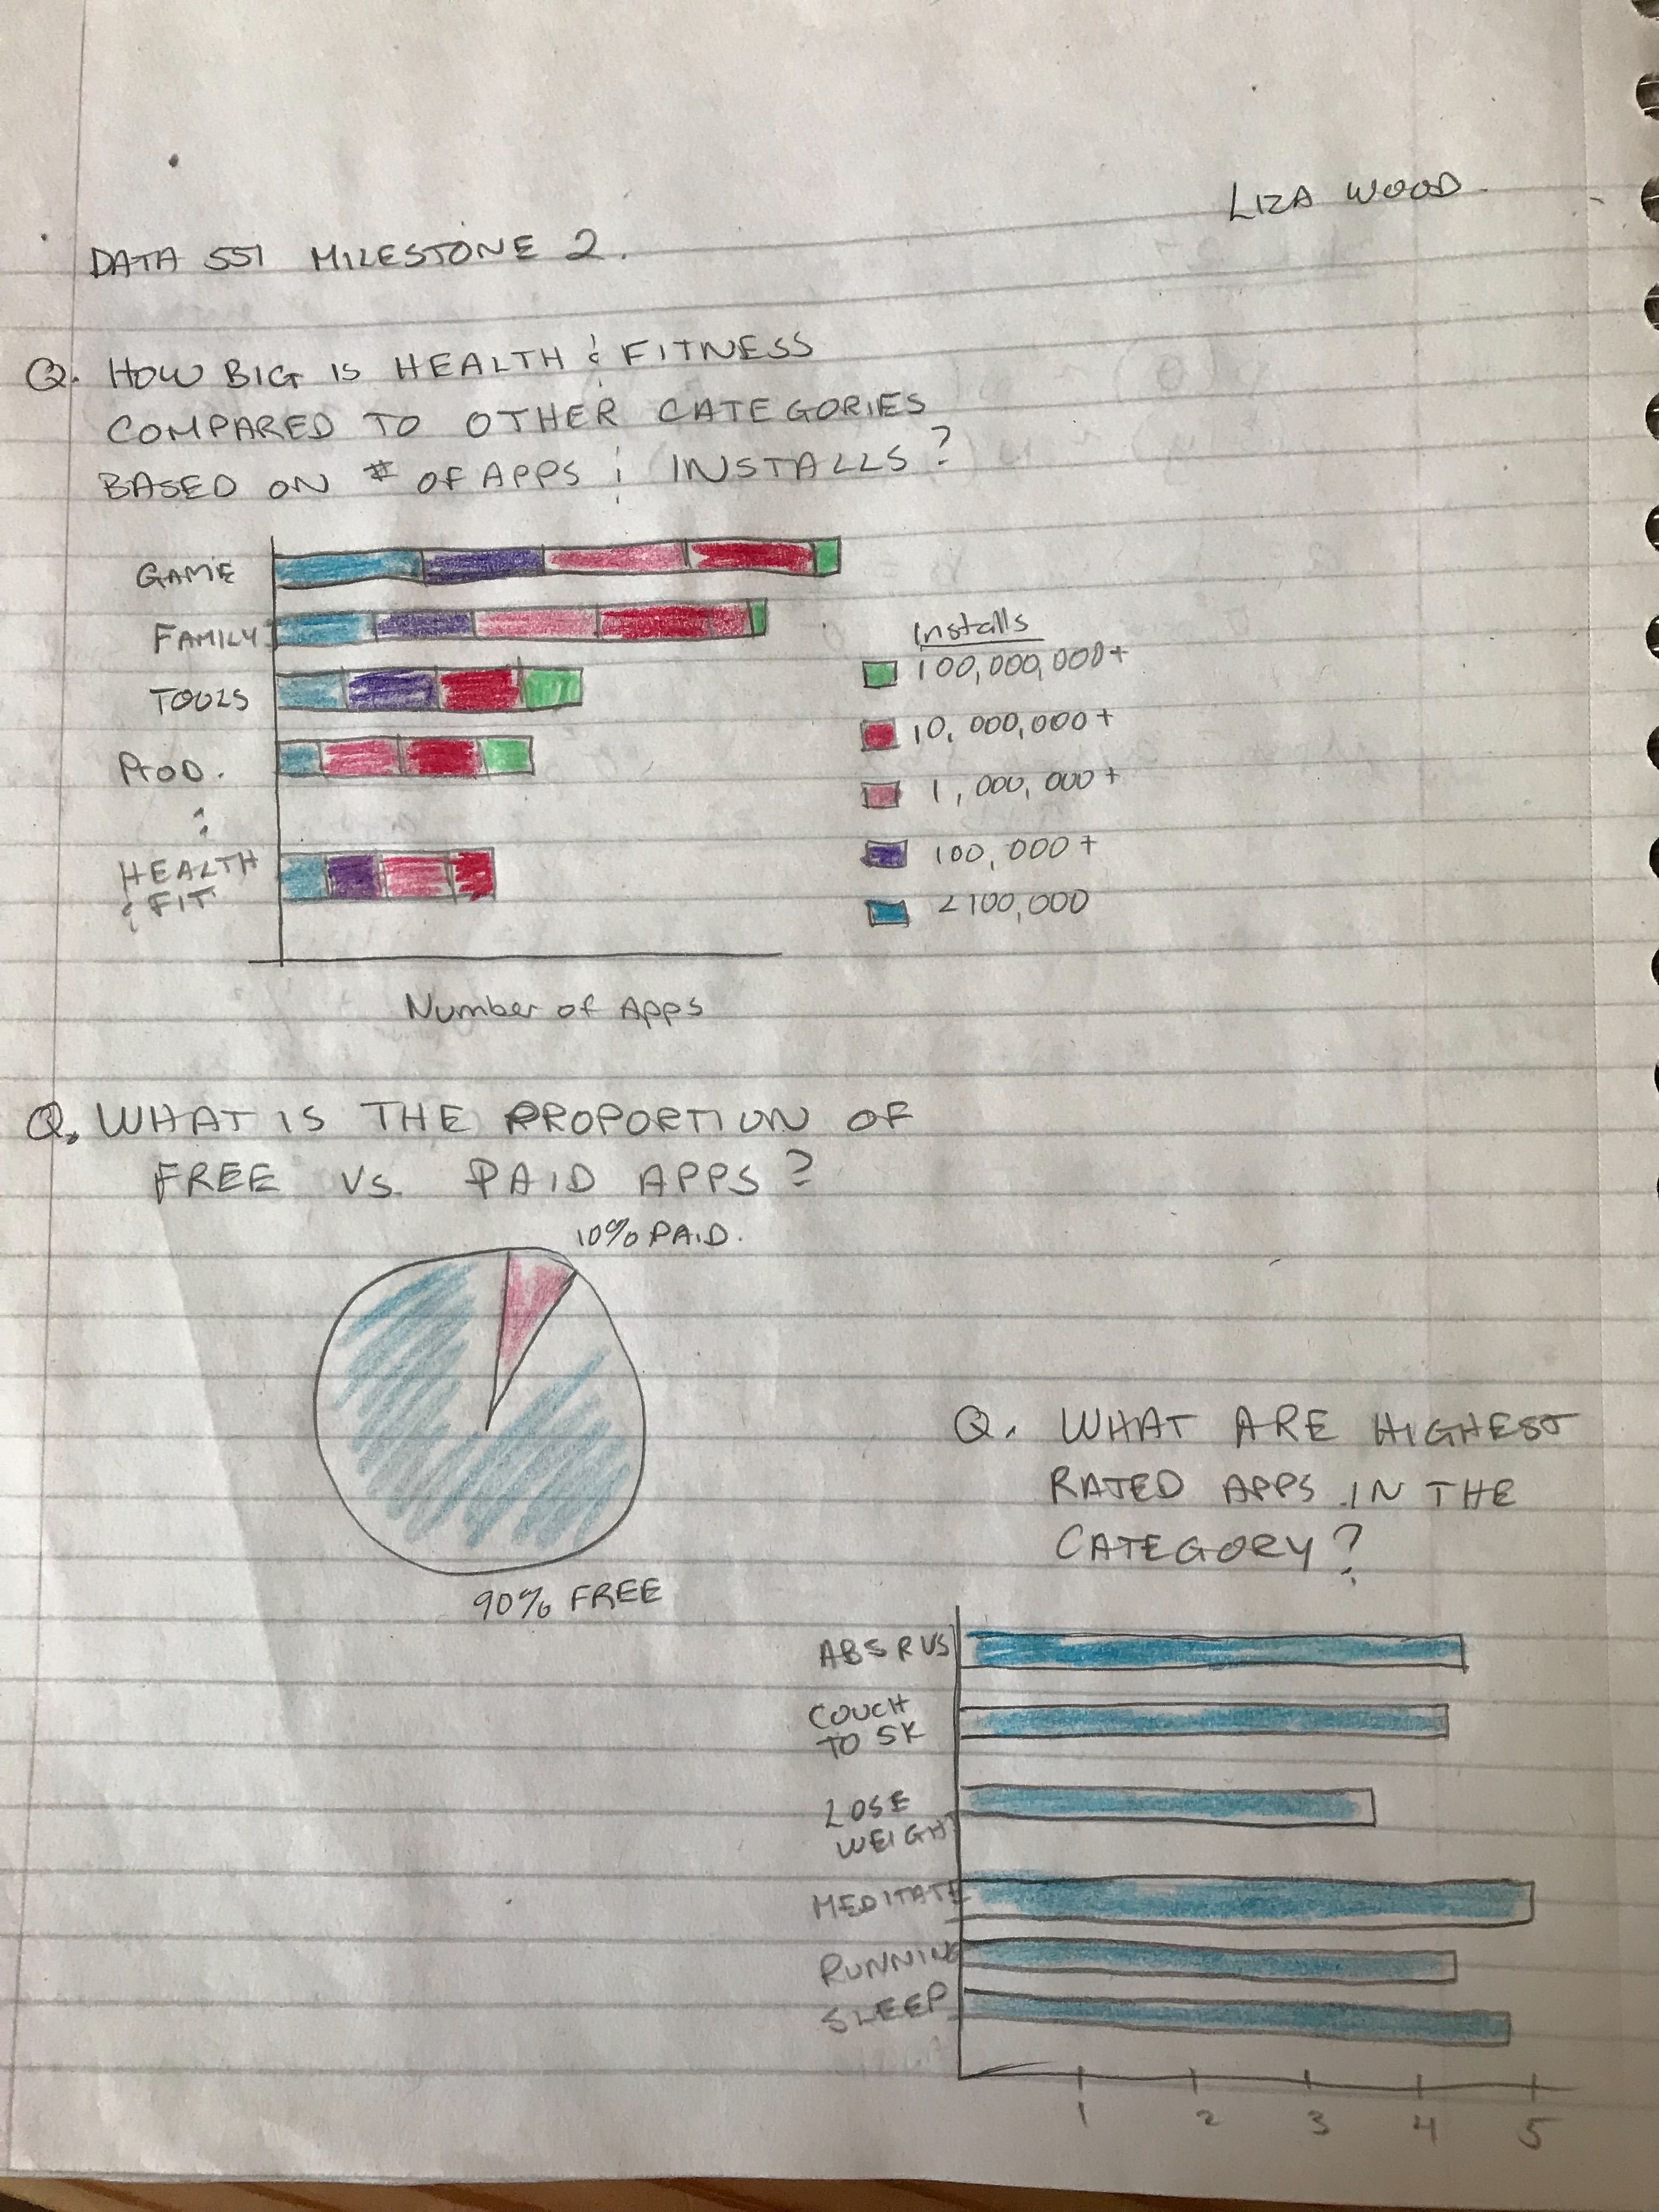 LIZA WOOD
DATA 551 MILESTONE 2.
Q. HOW BIG IS HEALTH & FITNESS
COMPARED TO OTHER CATEGORIES
BASED ON # OF APPS & INSTALLS?
GAME
FAMILY
TOOLS
PROD.
:
HEALTH
& FIT
Number of Apps
Installs
100,000,000+
10,000,000+
1,000,000+
100,000+
<100,000
Q. WHAT IS THE PROPORTION OF
FREE VS. PAID APPS?
10% PAID.
90% FREE
Q. WHAT ARE HIGHEST
RATED APPS IN THE
CATEGORY?
ABS R US
COUCH
TO 5K
LOSE
WEIGHT
MEDITATE
RUNNING
SLEEP
1 2 3 4 5